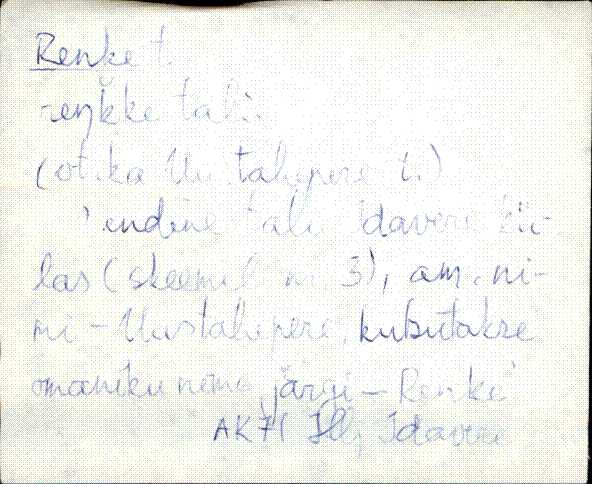 Renke t.
reŋ̆kke talu
(ot. ka Uustalupere t.)
'endine talu Idavere kü-
las (skeemil nr 3), am. ni-
mi - Uustalupere, kutsutakse
omaniku nime järgi - Renke'
AK71 Idavere